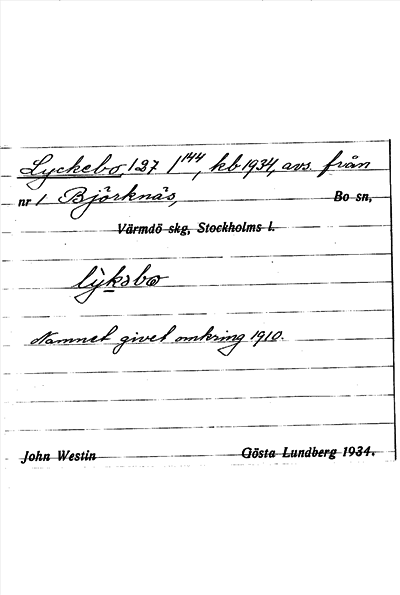 Lyckebo, 1 27 /144, kb 1934, avs. från
nr 1 Björknäs, Bo sn,
Värmdö skg, Stockholms l.
lỳkəbo
Namnet givet omkring 1910.
John Westin Gösta Lundberg 1934.